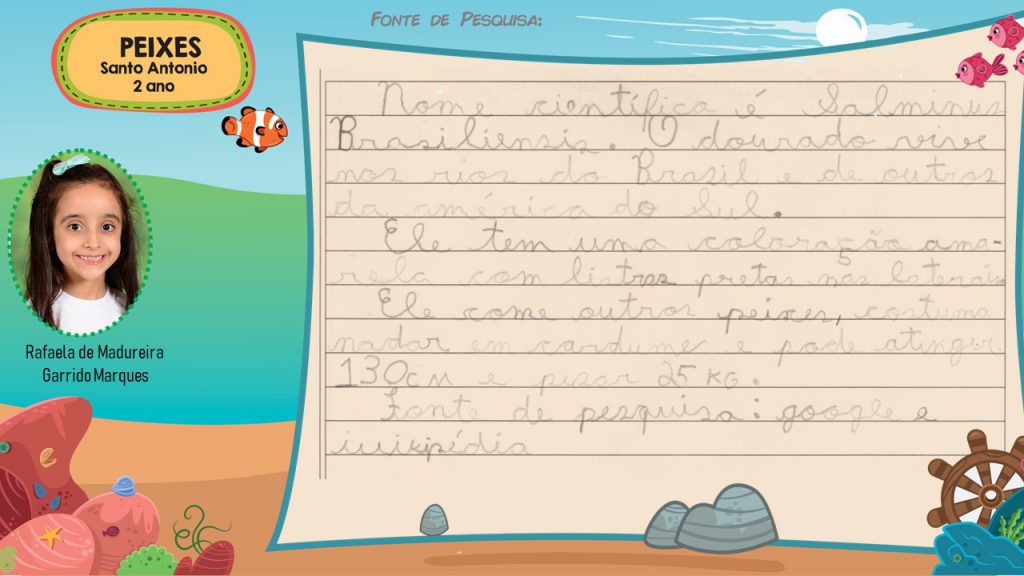 FONTE DE PESQUISA:
PEIXES
Santo Antonio
2 ano
Rafaela de Madureira
Garrido Marques
Nome científico é Salminus
Brasiliensis. O dourado vive
nos rios do Brasil e de outros
da américa do Sul.
Ele tem uma coloração ama-
rela com listras pretas nas laterais
Ele come outros peixes, costuma
nadar em cardumes e pode atingir
130cm e pesar 25 kg.
Fonte de pesquisa: google e
wikipédia